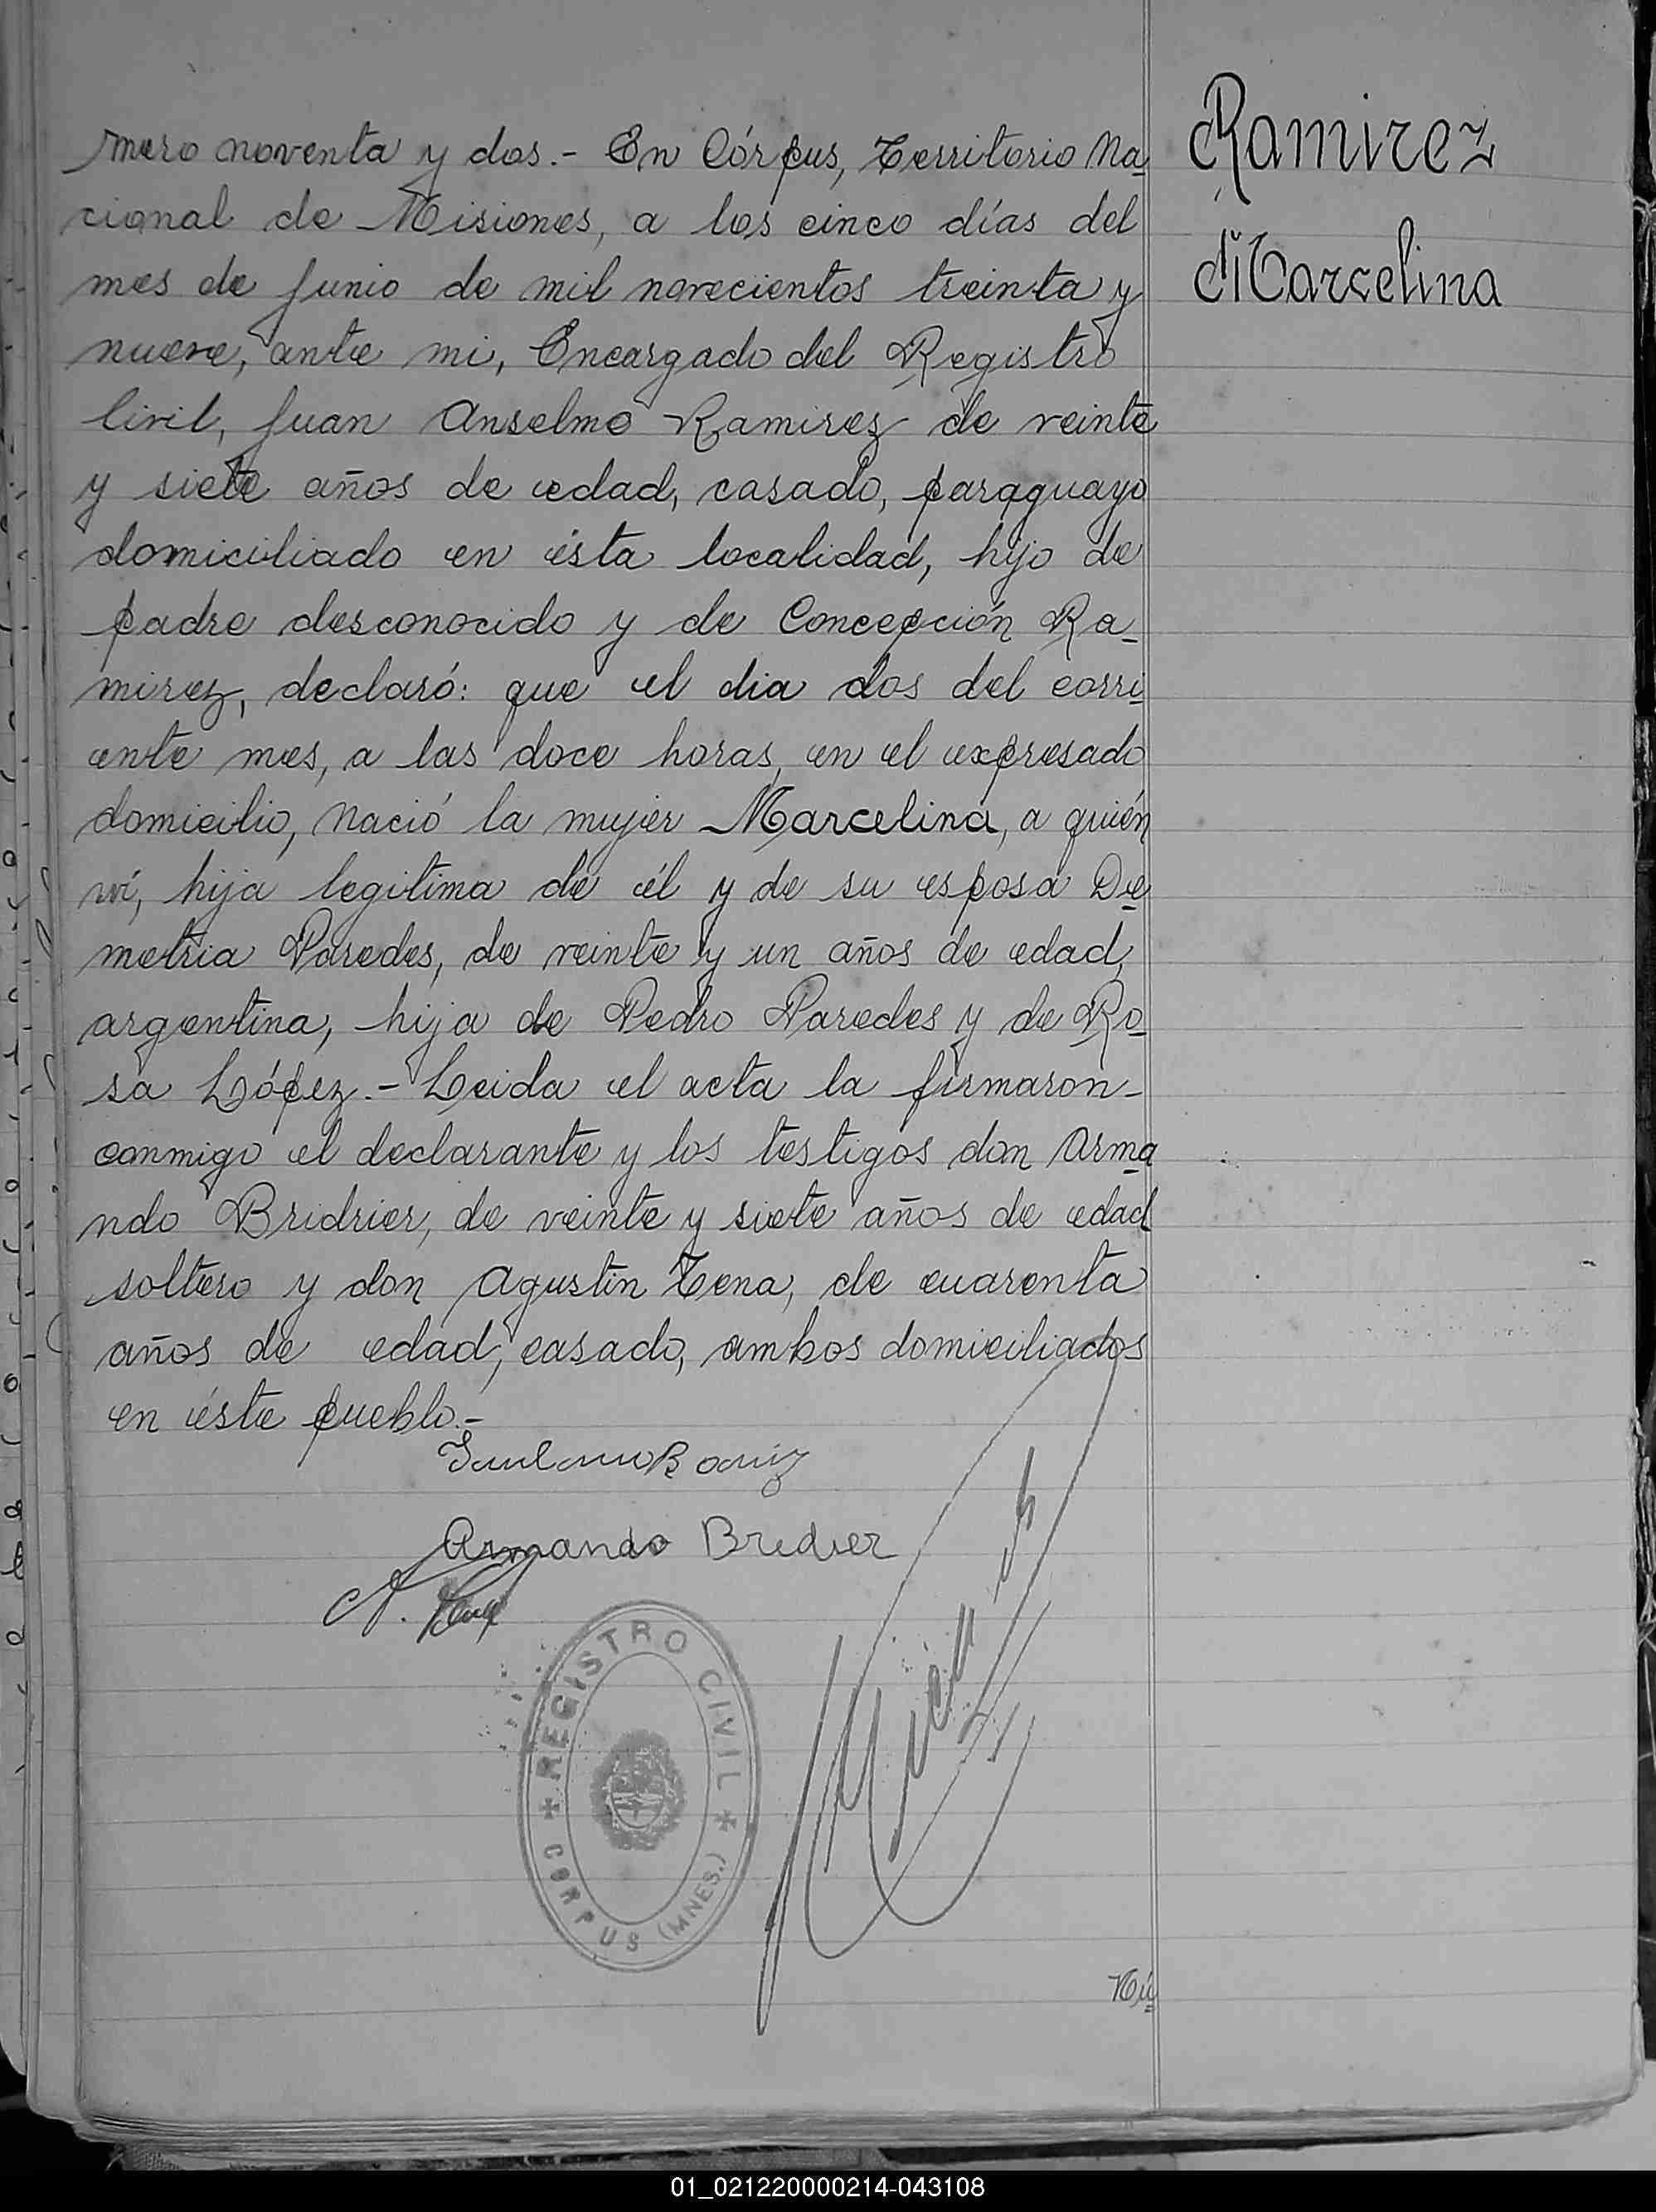 Ramirez
Marcelina
mero noventa y dos.- En Córpus, Territorio Na
cional de Misiones, a los cinco días del
mes de Junio de mil novecientos treinta y
nueve, ante mi, Encargado del Registro
Civil, Juan Anselmo Ramirez de veinte
y siete años de edad, casado, paraguayo
domiciliado en ésta localidad, hijo de
padre desconocido y de Concepción Ra-
mirez, declaró: que el dia dos del corri
ente mes, a las doce horas, en el expresado
domicilio, nació la mujer Marcelina, a quién
ví, hija legitima de él y de su esposa De
metria Paredes, de veinte y un años de edad,
argentina, hija de Pedro Paredes y de Ro
sa López.- Leida el acta la firmaron-
conmigo el declarante y los testigos don Arma
ndo Bridrier, de veinte y siete años de edad
soltero y don Agustin Tena, de cuarenta
años de edad, casado, ambos domiciliados
en éste pueblo.-
Armando Bredier
A. Tena
REGISTRO CIVIL
CORPUS (MNES.)
Nú
01_021220000214-043108